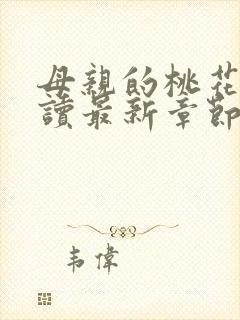 母親的桃花
讀最新章節
韦偉